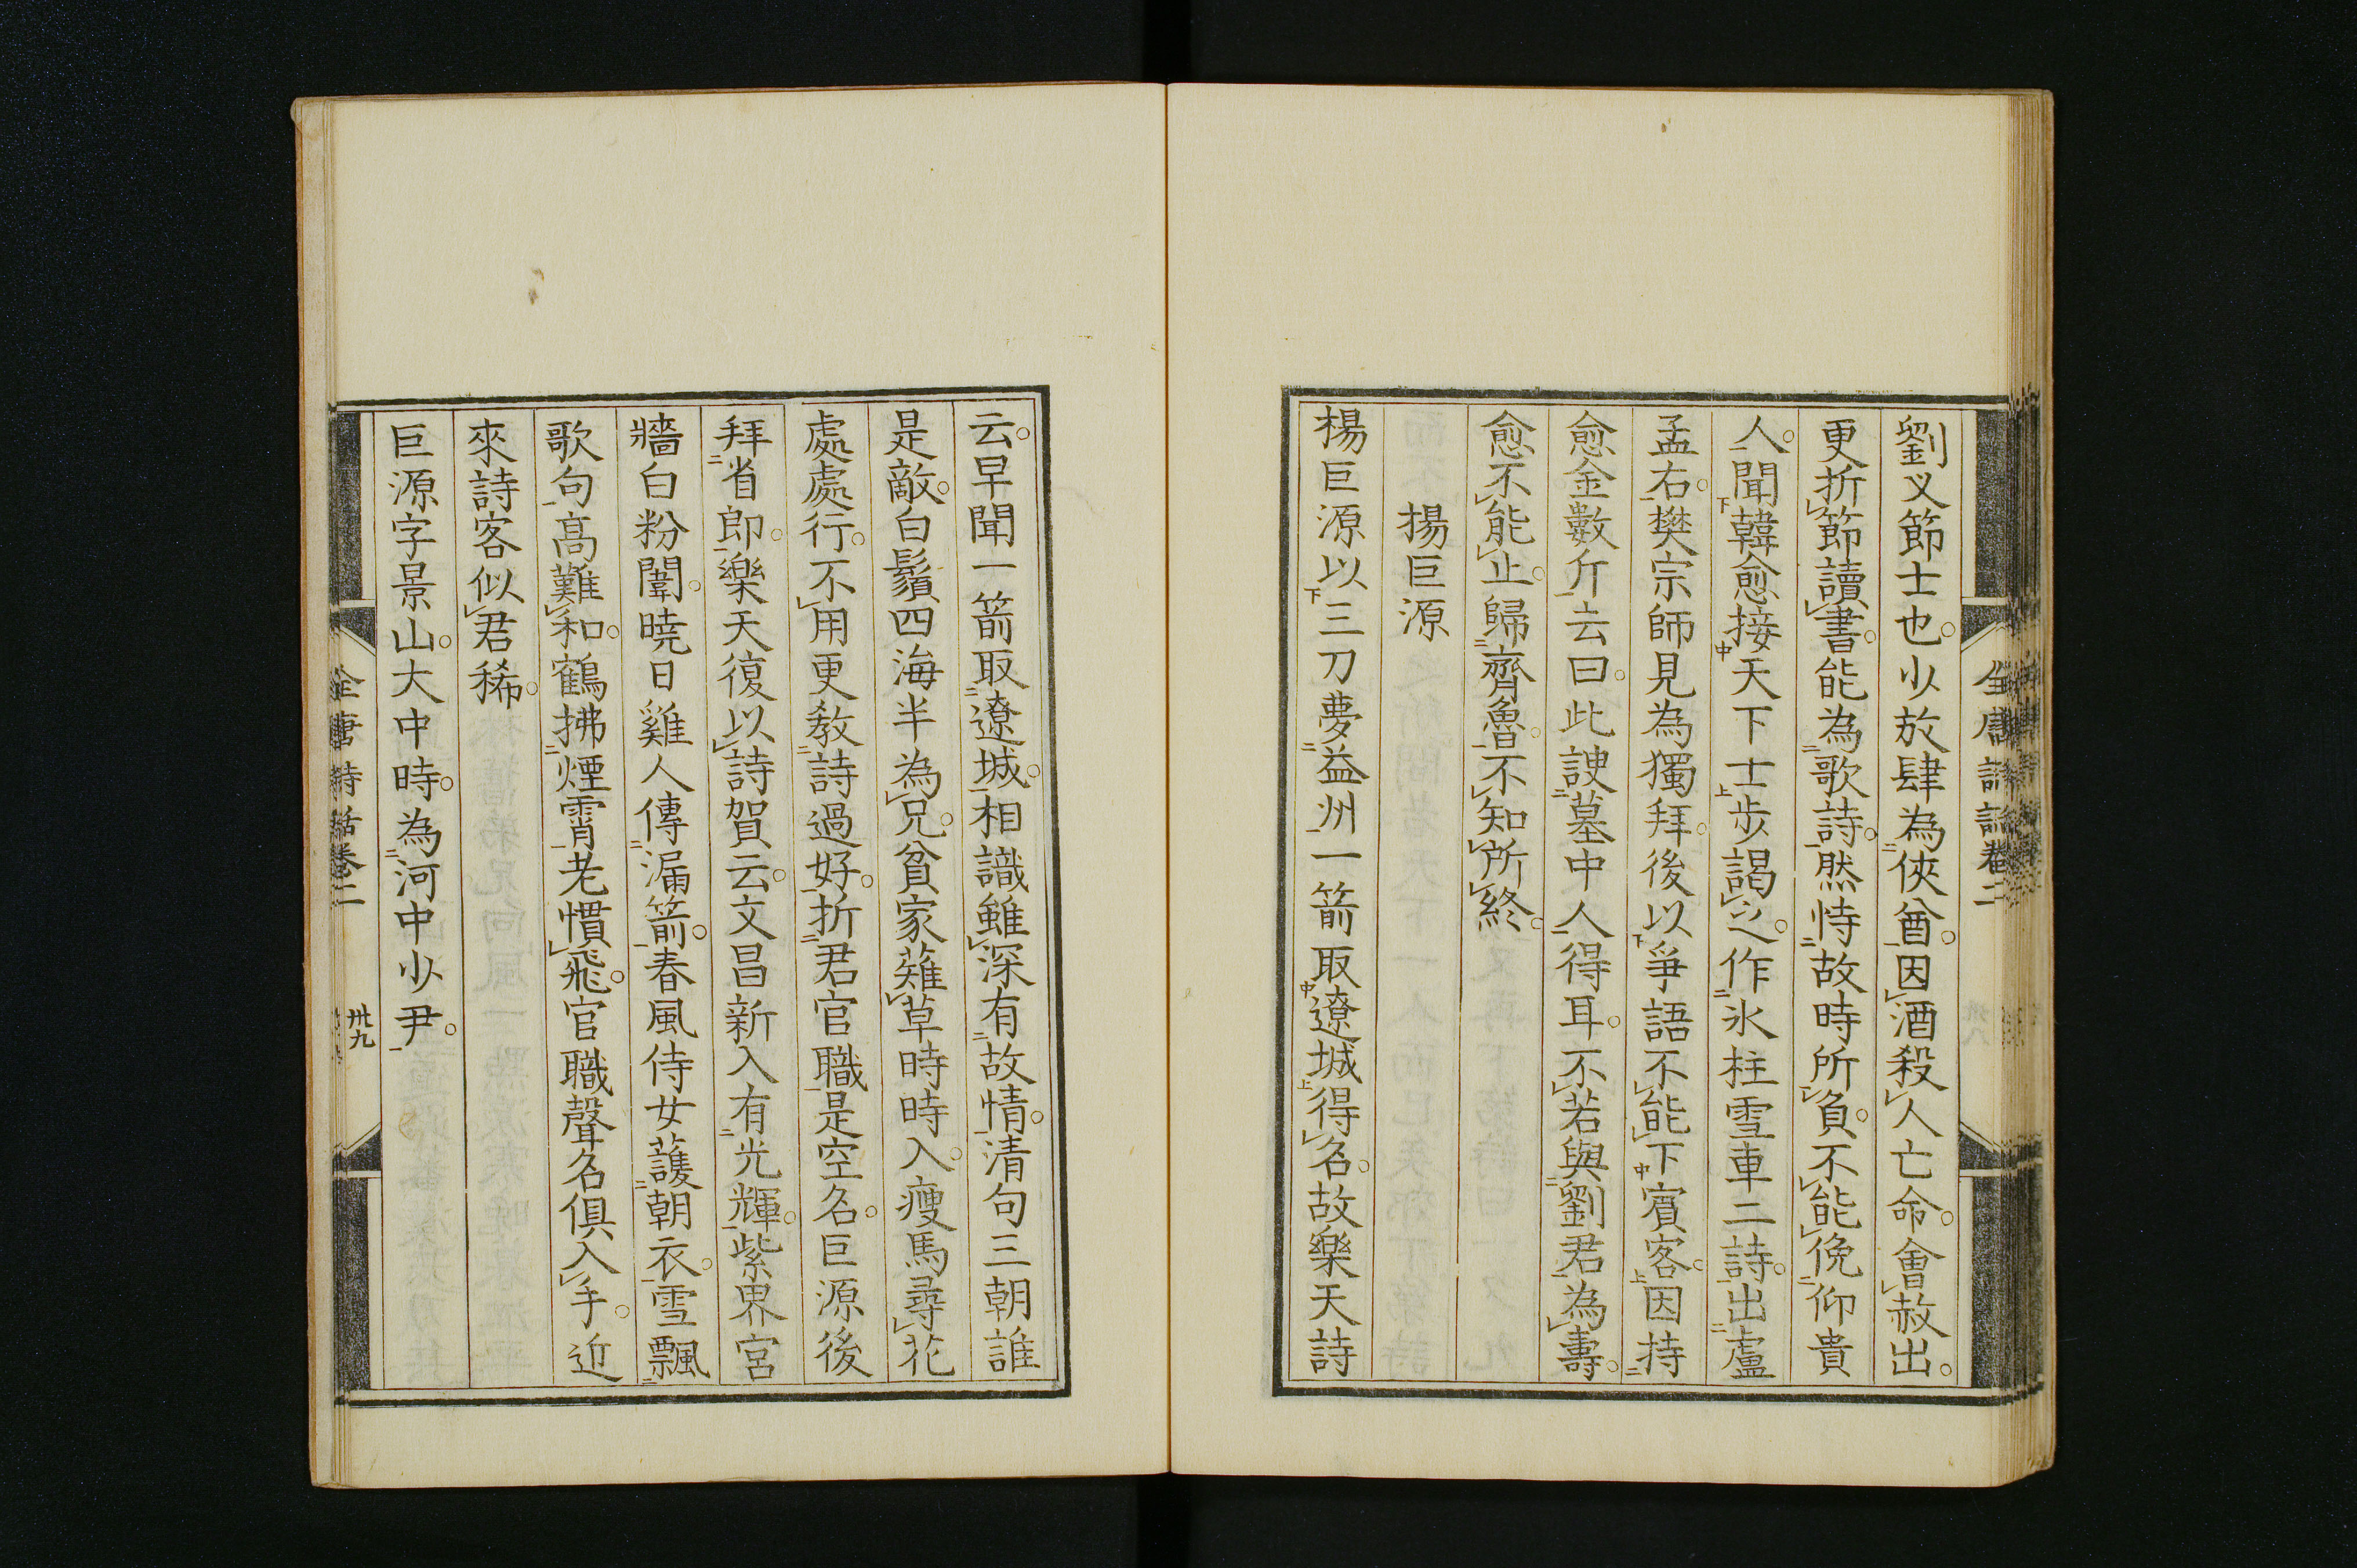 劉乂節士也。少放肆為俠酋。因酒殺人亡命。會赦出。
更折節讀書。能為歌詩。然恃故時所負。不能俛仰貴
人。聞韓愈接天下士步謁之。作氷柱雪車二詩。出盧
孟右。樊宗師見為獨拜。後以爭語不能下賓客。因持
愈金數斤去曰。此諛墓中人得耳。不若與劉君為壽。
愈不能止。歸齊魯。不知所終。
揚巨源
楊巨源以三刀夢益州一箭取遼城得名。故樂天詩
云。早聞一箭取遼城。相識雖深有故情。清句三朝誰
是敵。白鬚四海半為兄。貧家薙草時時入。瘦馬尋花
處處行。不用更教詩過好。折君官職是空名。巨源後
拜省郎。樂天復以詩賀云。文昌新入有光輝。紫界宮
牆白粉闈。曉日雞人傳漏箭。春風侍女護朝衣。雪飄
歌句高難和。鶴拂煙霄老慣飛。官職聲名俱入手。近
來詩客似君稀。
巨源字景山。大中時。為河中少尹。
全唐詩話卷二
卅九
全唐詩話卷二